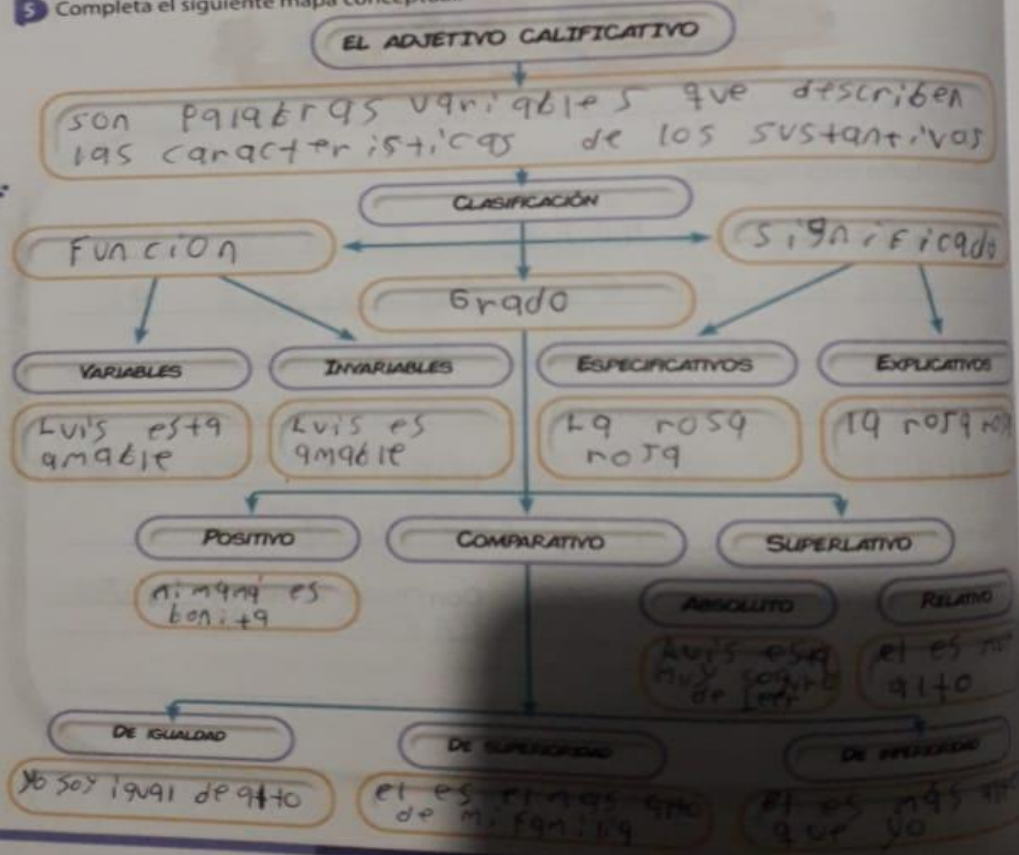 5 Completa el siguiente mapa
EL ADJETIVO CALIFICATIVO
son palabras variables que describen
las caracteristicas de los sustantivos
CLASIFICACIÓN
Funcion
Significado
Grado
VARIABLES
INVARIABLES
ESPECIFICATIVOS
EXPLICATIVOS
Luis esta
amable
Luis es
amable
La rosa
rosa
la rosa
POSITIVO
COMPARATIVO
SUPERLATIVO
mi mamá es
bonita
ABSOLUTO
RELATIVO
Luis esta
muy
de leer
el es
alto
DE IGUALDAD
DE SUPERIORIDAD
DE INFERIORIDAD
yo soy igual de alto
el es el mas
de mi familia
el es más
que yo